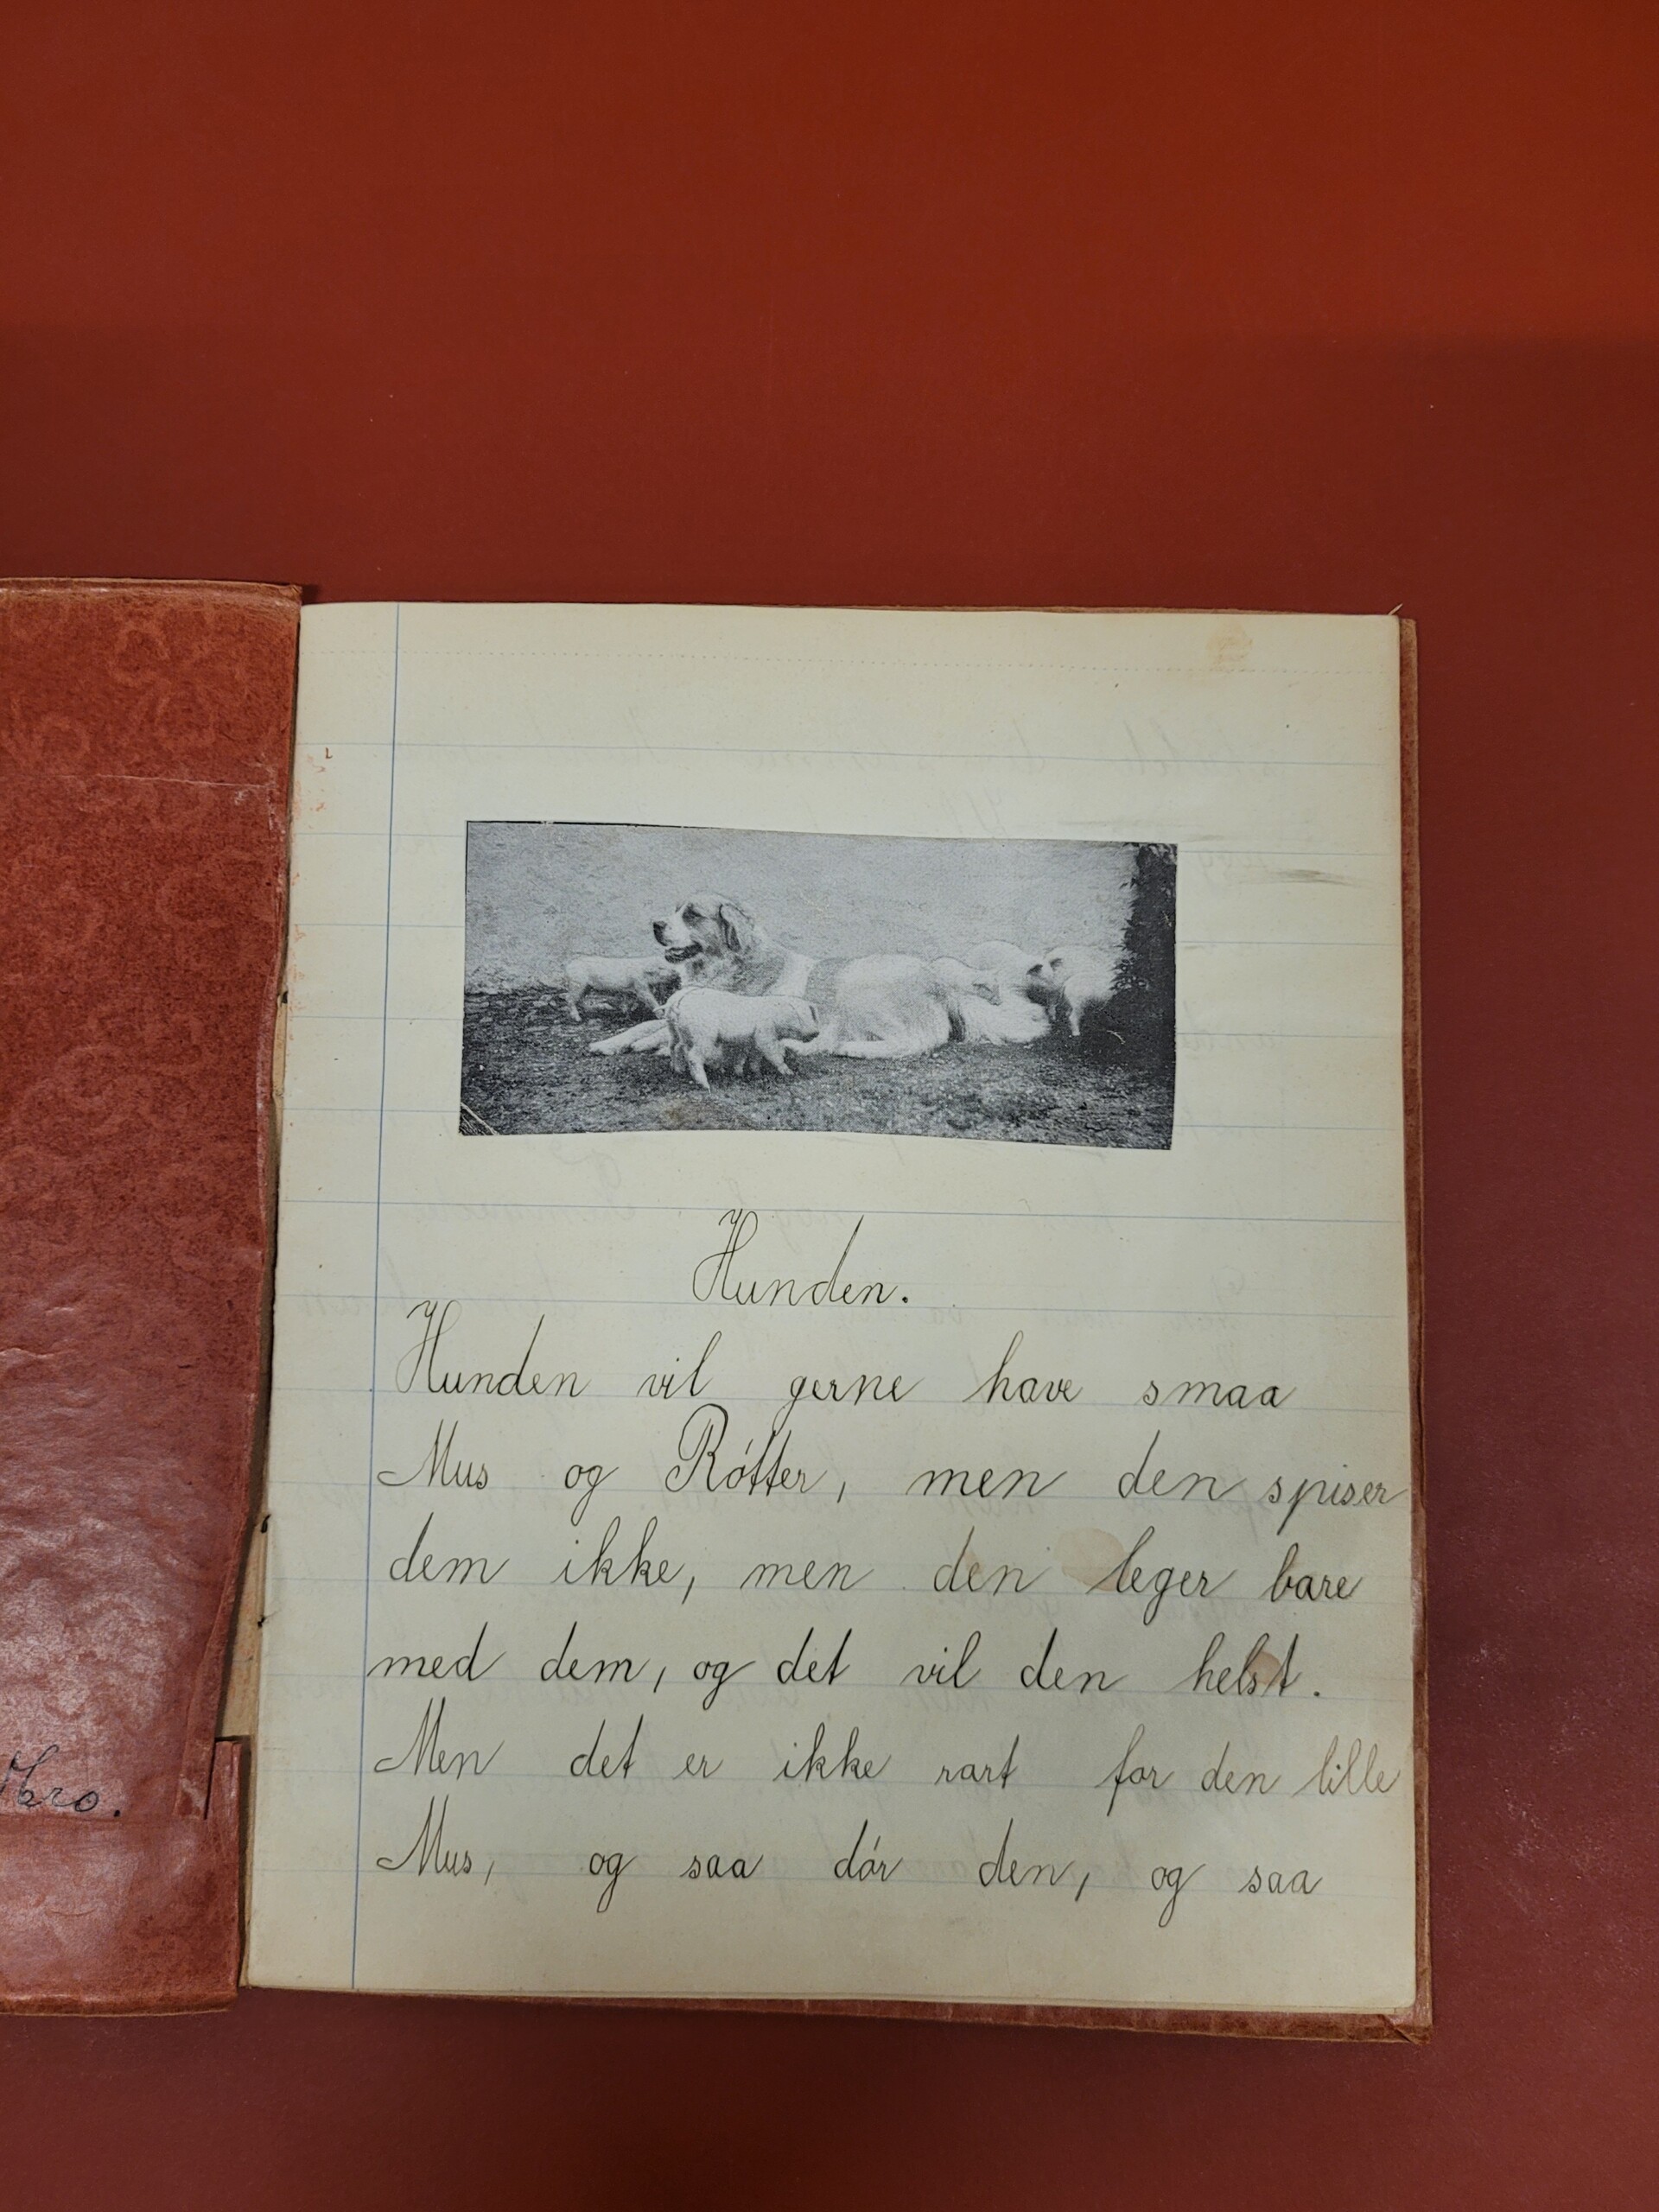 Hunden.
Hunden vil gerne have smaa
Mus og Rótter, men den spiser
dem ikke, men den leger bare
med dem, og det vil den helst.
Men det er ikke rart for den lille
Mus, og saa dór den, og saa